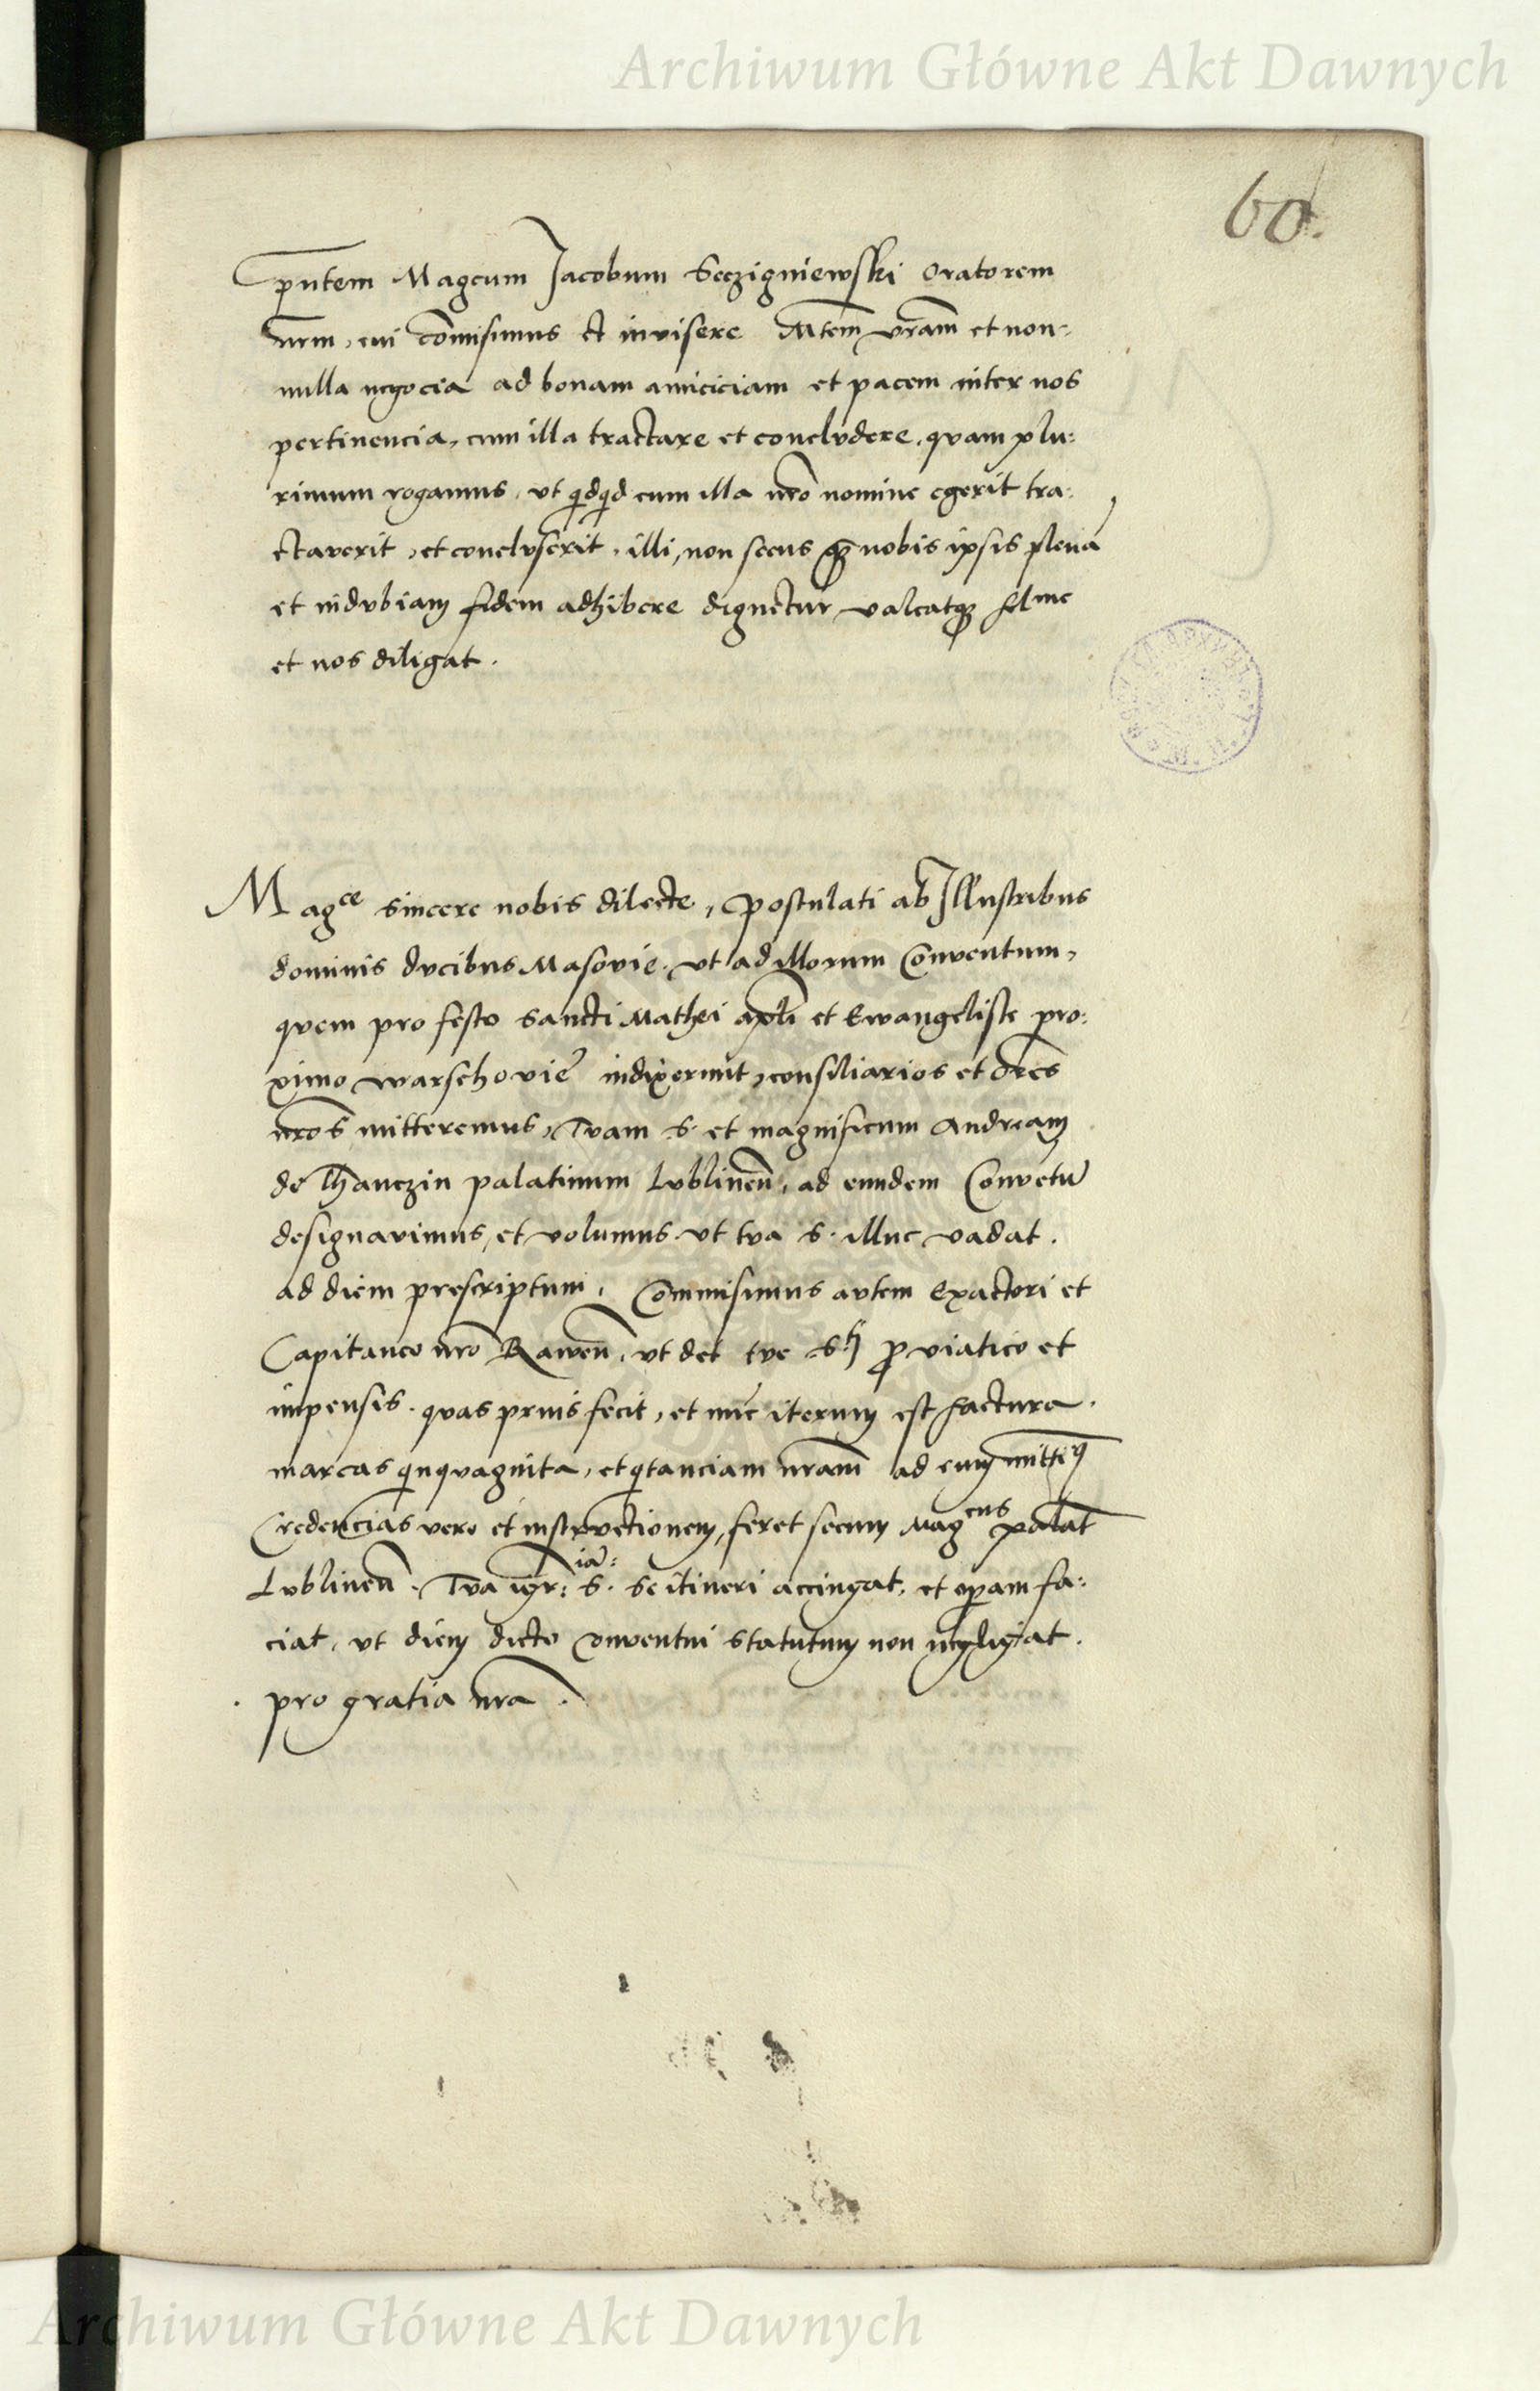 Archiwum Główne Akt Dawnych
60.
pntem Magcum Jacobum Seczigniewski oratorem
nrm, cui comisimus et invisere Mtem vram et non-
nulla negocia ad bonam amiciciam et pacem inter nos
pertinencia, cum illa tractare et conclvdere, qvam plu:
rimum rogamus, vt qdqd cum illa nro nomine egerit tra:
ctaverit, et conclvserit, illi, non secus q nobis ipsis plena
et indvbiam fidem adhibere dignetur valeatq
et nos diligat.
Magce sincere nobis dilecte, Postulati ab Illustribus
dominis dvcibus Masovie. vt ad illorum Conventum,
qvem pro festo Sancti Mathei apli et Ewangeliste pro:
ximo Warschovie indixerunt, consiliarios et ores
nros mitteremus, Tvam S. et magnificum Andream
de Thanczin palatinum Lvblinen, ad eundem Conventu
designavimus, et volumus. vt tva S. illuc vadat.
ad diem prescriptum, Commisimus avtem Exactori et
Capitaneo nro Rawen, vt det tve S p viatico et
impensis. qvas prius fecit, et nuc iterum est factura.
marcas qinqvaginta, et qitanciam nram ad eum mitti
Credencias vero et instrvctionem, feret secum Magcus palat
Lvblinen. Tva igr: S.ia: se itineri accingat, et opam fa:
ciat, vt diem dicto conventui statutum non negligat.
pro gratia nra.
Archiwum Główne Akt Dawnych